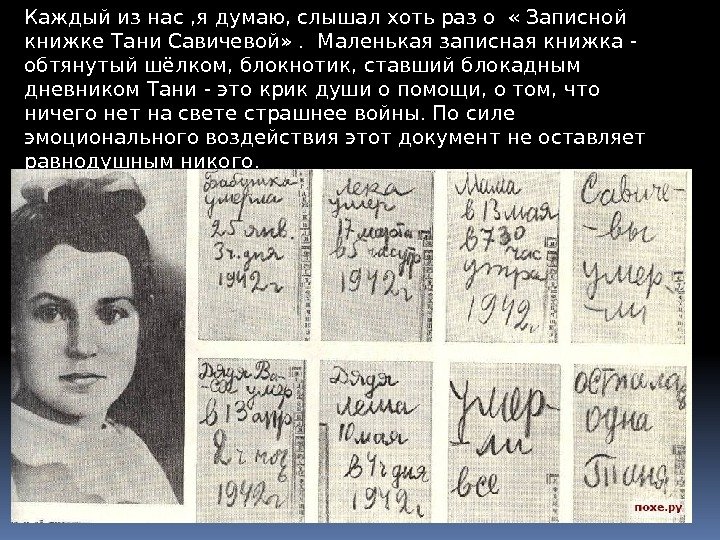 Каждый из нас ,я думаю, слышал хоть раз о « Записной
книжке Тани Савичевой» . Маленькая записная книжка -
обтянутый шёлком, блокнотик, ставший блокадным
дневником Тани - это крик души о помощи, о том, что
ничего нет на свете страшнее войны. По силе
эмоционального воздействия этот документ не оставляет
равнодушным никого.
Бабушка
умерла
25 янв.
3 ч. дня
1942 г
Лека
умер
17 марта
в 5 час утр
1942 г
Мама
в 13 мая
в 7 30
час
утра
1942 г
Савиче-
-вы
умер
-ли
Дядя Ва-
ся умер
в 13 апр
2 ч ноч
1942 г
Дядя
Леша
10 мая
в 4 ч дня
1942 г
Умер-
-ли
все
Осталась
одна
Таня
похе.ру